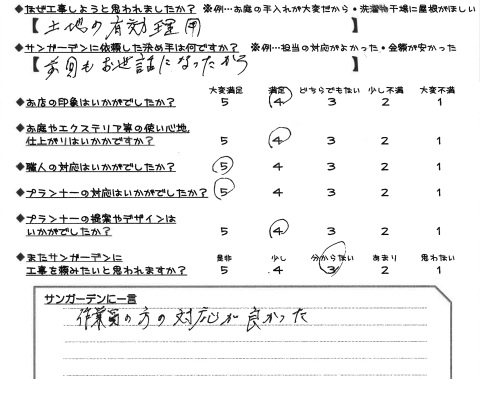 ◆なぜ工事しようと思われましたか？ ※例…お庭の手入れが大変だから・洗濯物干場に屋根がほしい
【 土地の有効理用 】
◆サンガーデンに依頼した決め手は何ですか？ ※例…担当の対応がよかった・金額が安かった
【 前回もお世話になったから 】
大変満足 満足 どちらでもない 少し不満 大変不満
◆お店の印象はいかがでしたか？ 5 4 3 2 1
◆お庭やエクステリア等の使い心地、
仕上がりはいかかですか？ 5 4 3 2 1
◆職人の対応はいかがでしたか？ 5 4 3 2 1
◆プランナーの対応はいかがでしたか？ 5 4 3 2 1
◆プランナーの提案やデザインは
いかがでしたか？ 5 4 3 2 1
◆またサンガーデンに 是非 少し 分からない あまり 思わない
工事を頼みたいと思われますか？ 5 4 3 2 1
サンガーデンに一言
作業員の方の対応が良かった